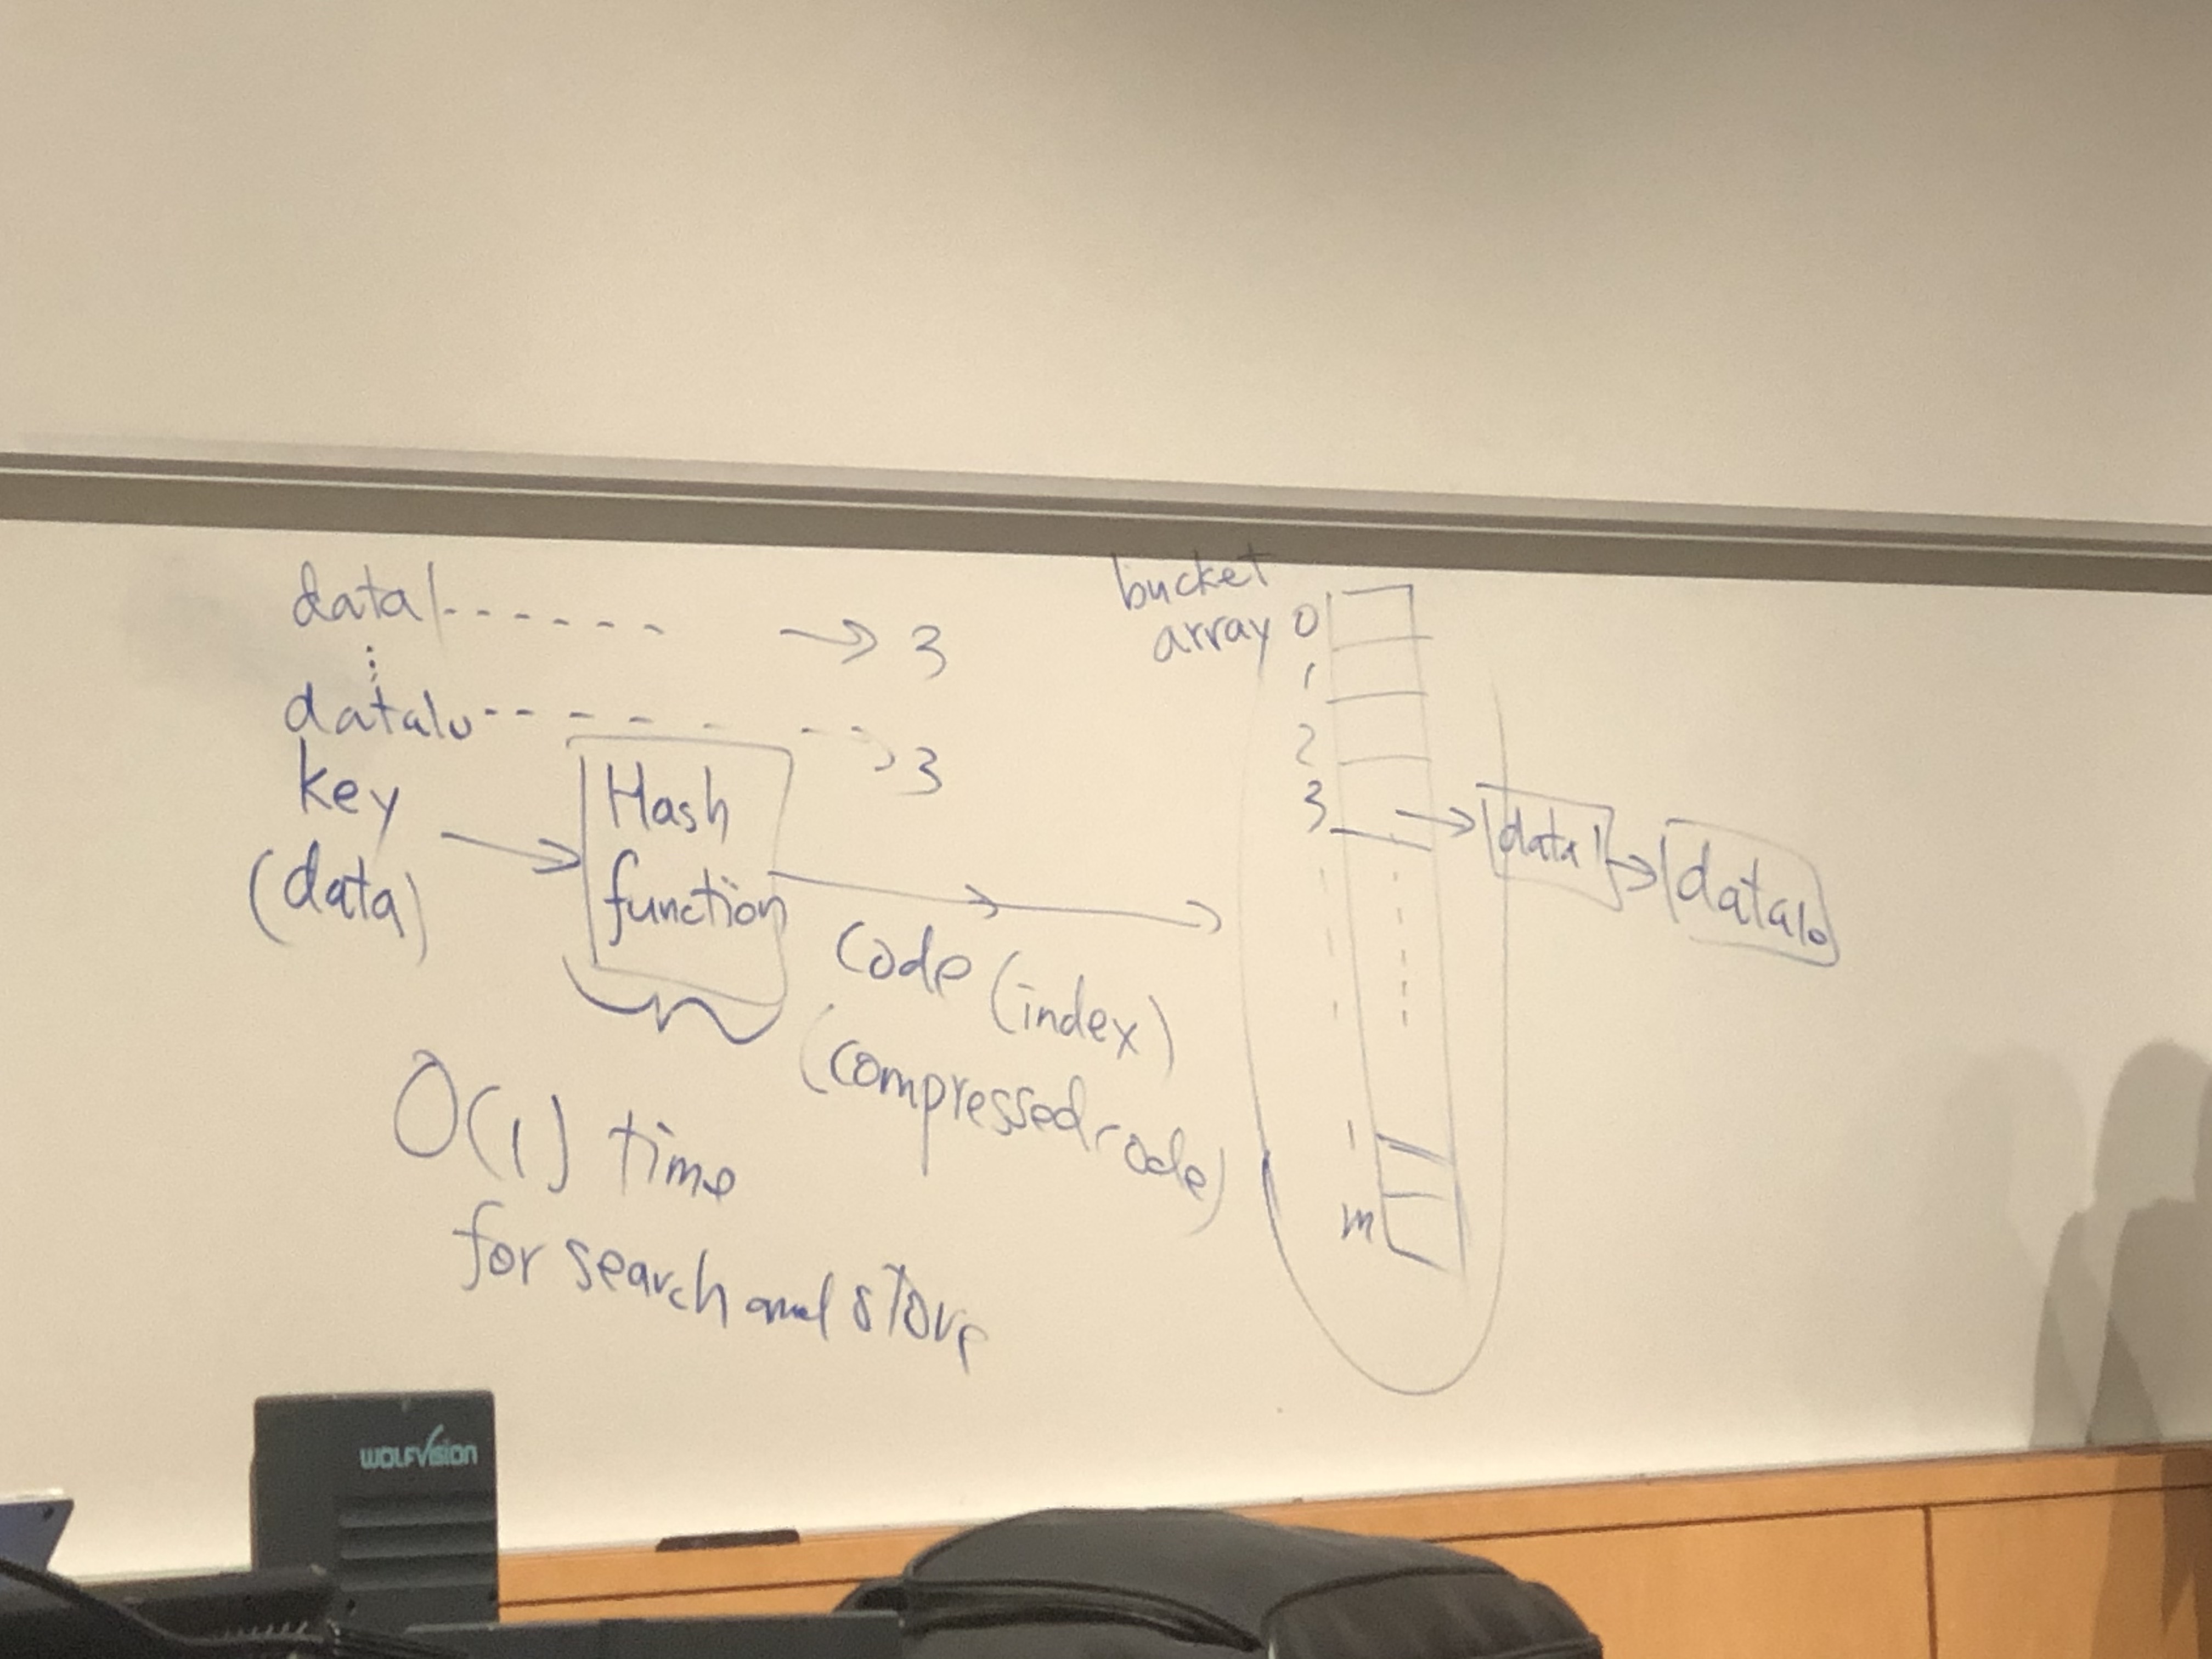 data1 ------ → 3
data10 ------ → 3
key
(data)
Hash
function
code (index)
(compressed code)
O(1) time
for search and store
bucket
array
0
1
2
3
data1
data10
m
WOLFVISION